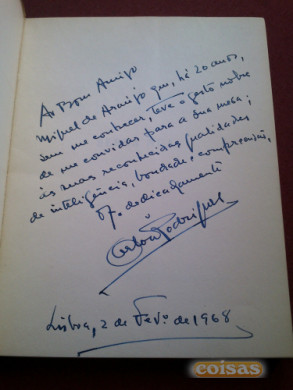 Ao Bom Amigo
Miguel de Araújo que, há 20 anos,
sem me conhecer, teve o gesto nobre
de me convidar para a sua mesa;
às suas reconhecidas qualidades
de inteligência, bondade e compreensão,
of. dedicadamente
Rodrigues
Lisboa, 2 de Fevº. de 1968
coisas